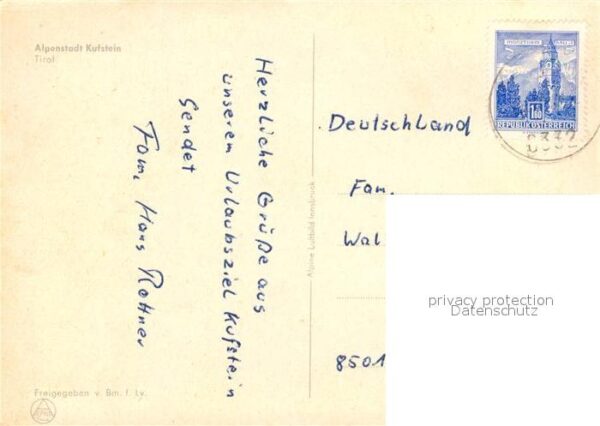 Alpenstadt Kufstein
Tirol
Herzliche Grüße aus
unserem Urlaubsziel Kufstein
Sendet
Fam. Hans Rottner
Freigegeben v. Bm. f. Lv.
Alpine Luftbild Innsbruck
1.50
REPUBLIK ÖSTERREICH
Deutschland
Fam.
Wal
8501
privacy protection
Datenschutz